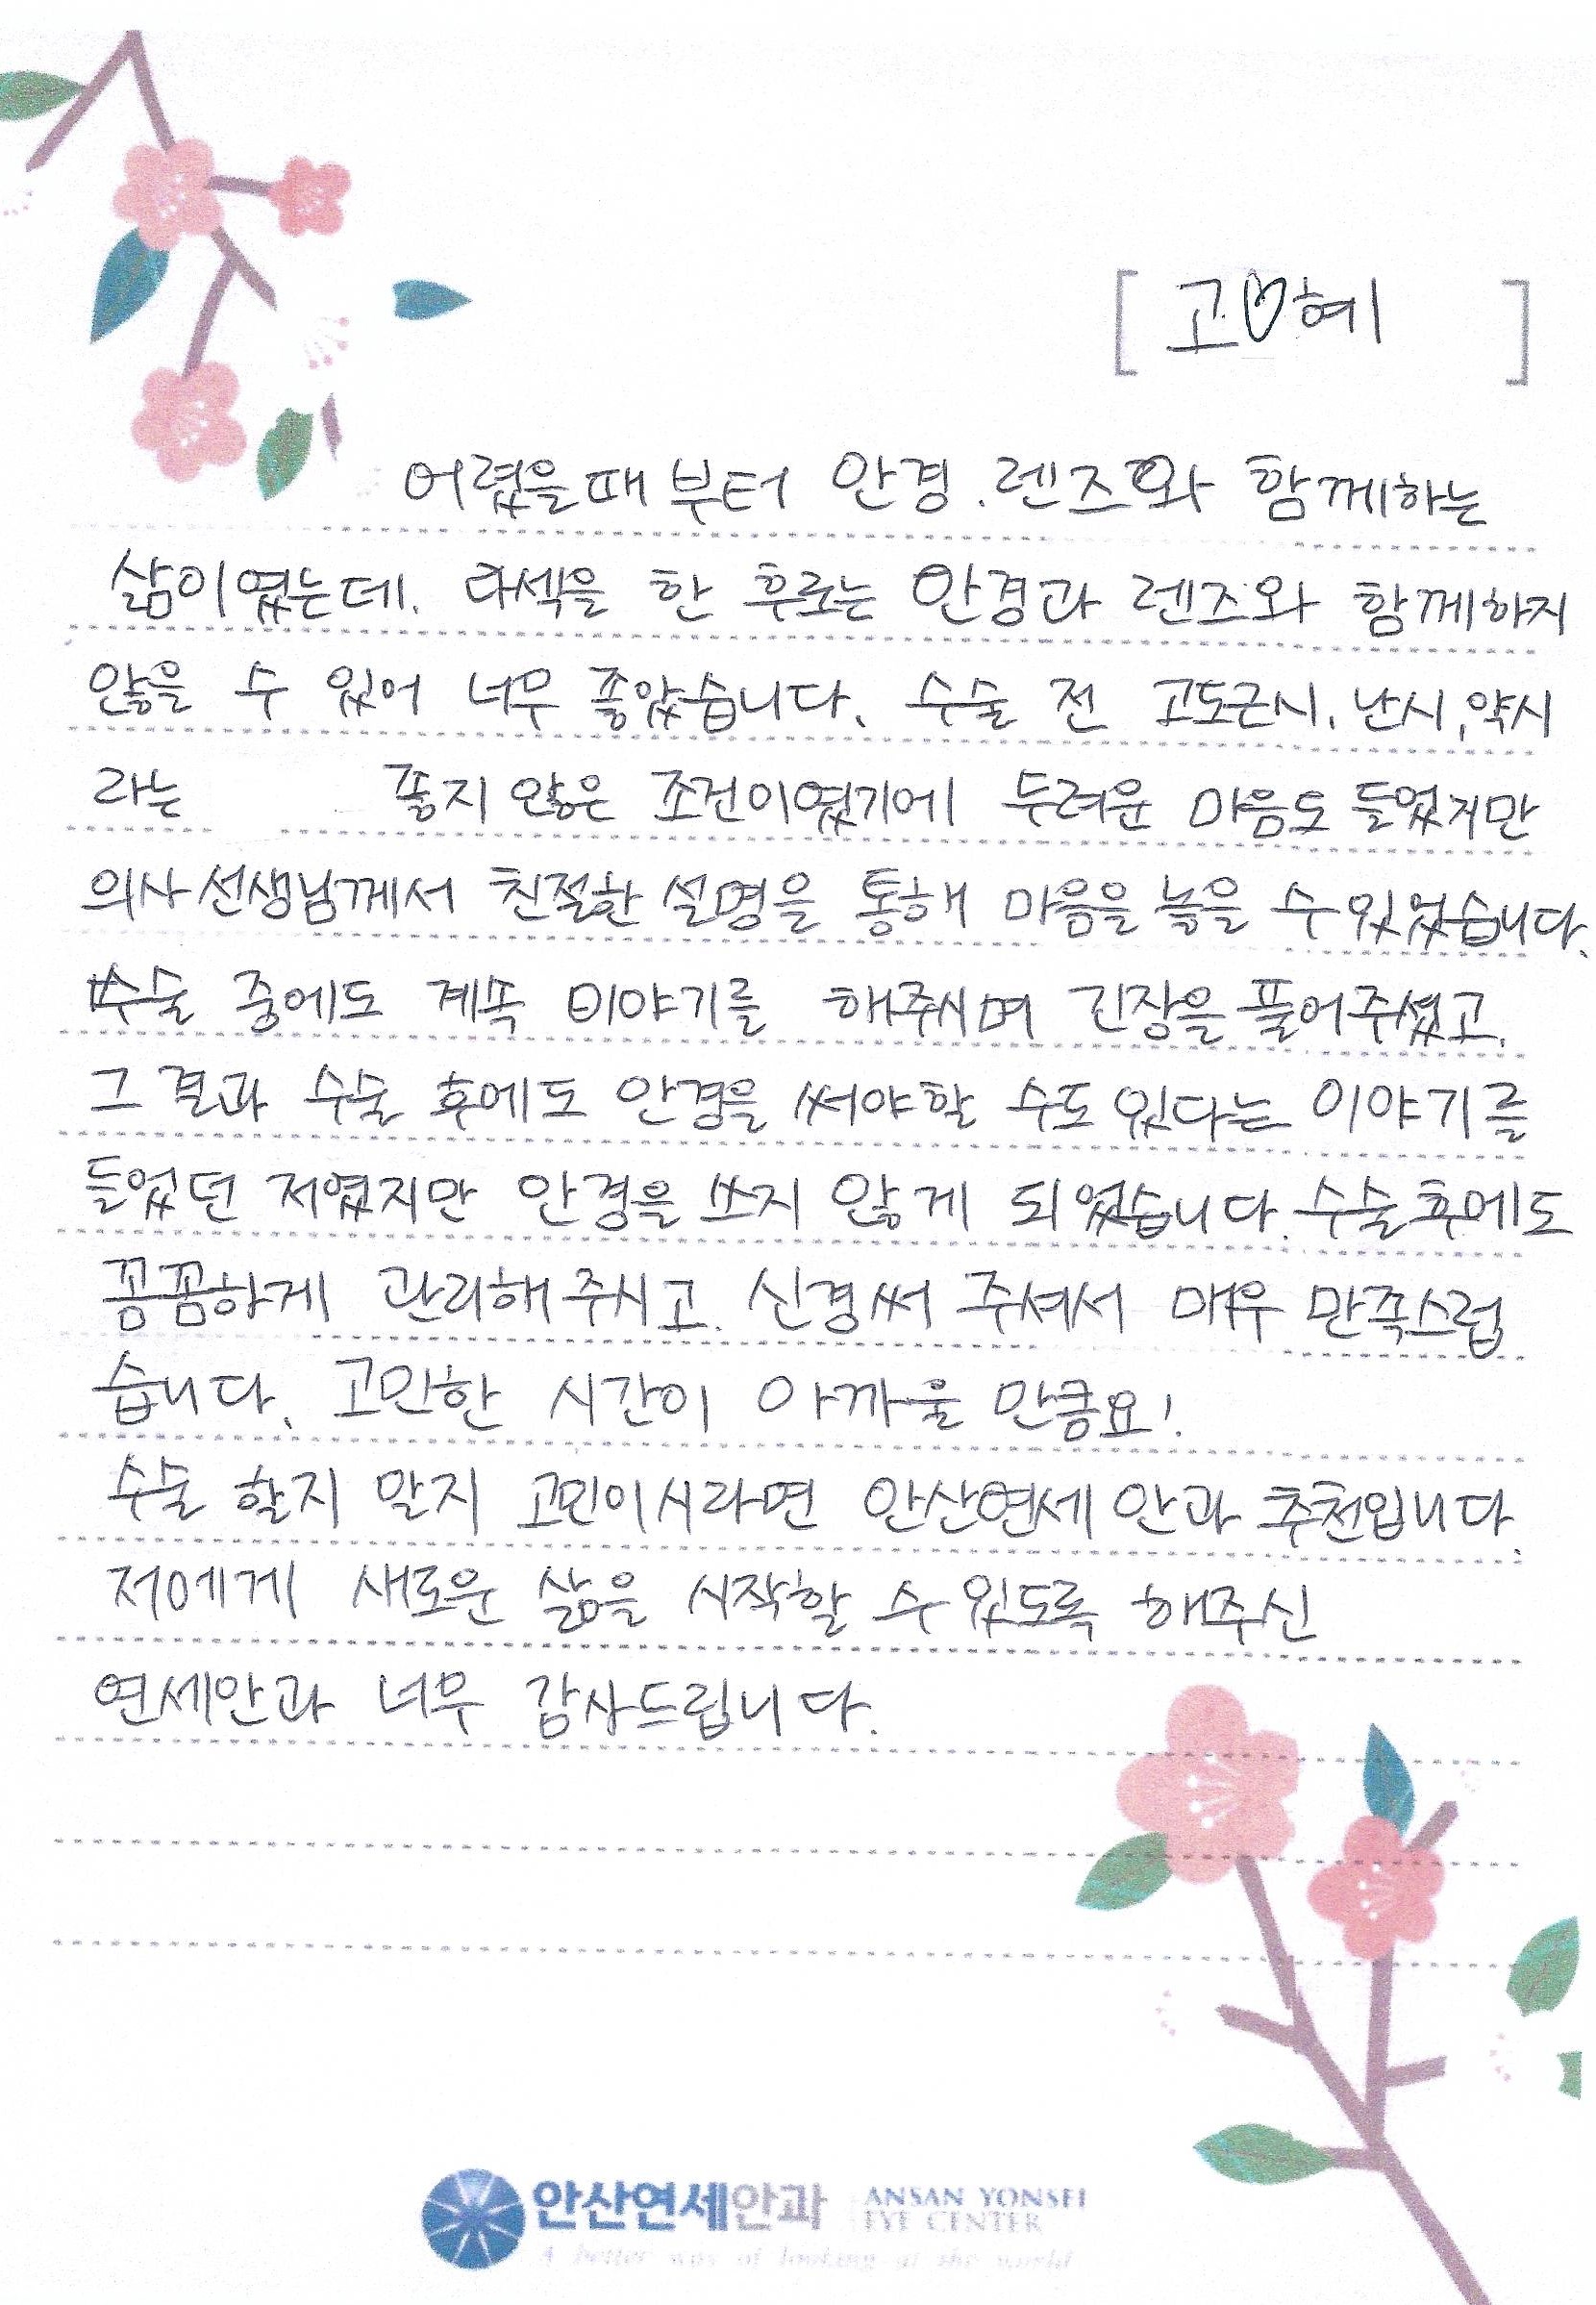 [ 고♡혜 ]
어렸을때부터 안경.렌즈와 함께하는
삶이였는데. 라섹을 한 후로는 안경과 렌즈와 함께하지
않을 수 있어 너무 좋았습니다. 수술 전 고도근시, 난시, 약시
라는 좋지 않은 조건이였기에 두려운 마음도 들었지만
의사선생님께서 친절한 설명을 통해 마음을 놓을 수있었습니다.
수술 중에도 계속 이야기를 해주시며 긴장을 풀어주셨고.
그 결과 수술 후에도 안경을 써야할 수도 있다는 이야기를
들었던 저였지만 안경을 쓰지 않게 되었습니다. 수술후에도
꼼꼼하게 관리해주시고. 신경써 주셔서 매우 만족스럽
습니다. 고민한 시간이 아까울 만큼요!
수술 할지 말지 고민이시라면 안산연세안과 추천입니다.
저에게 새로운 삶을 시작할 수있도록 해주신
연세안과 너무 감사드립니다.
안산연세안과 ANSAN YONSEI
EYE CENTER
A better way of looking at the world